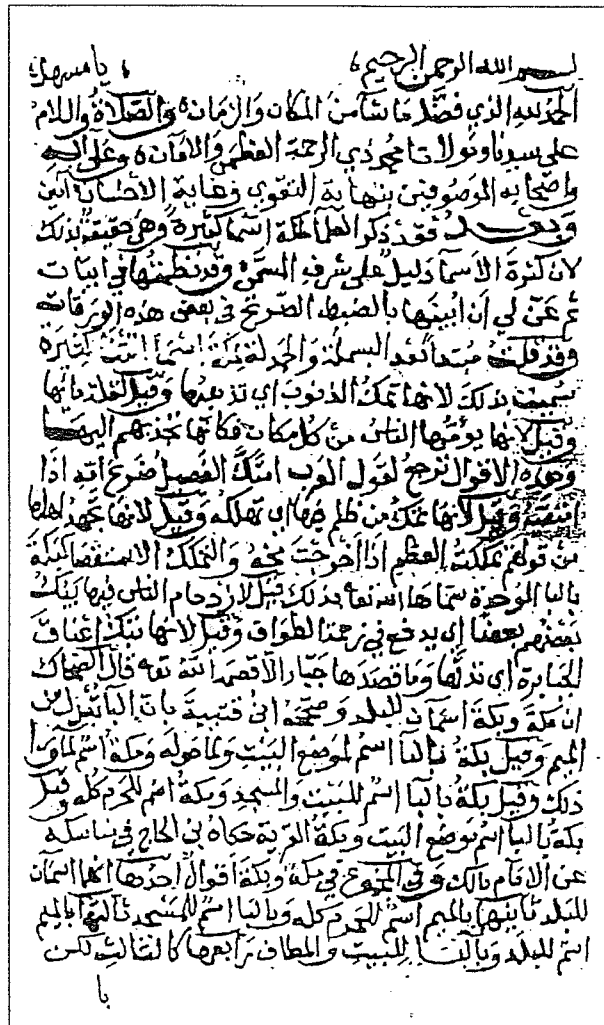 بسم الله الرحمن الرحيم ، يا مسهل ،
الحمد لله الذي فضل ما شا من المكان والزمان والصلاة والسلام
على سيدنا ومولانا محمد ذي الرحمة العظمى والامان ه وعلى اله
واصحابه الموصوفين بنهاية التقوى وغاية الاحسان امين
وبعد فقد ذكر العلما لمكة اسما كثيرة وهي حقيقة بذلك
لان كثرة الاسما دليل على شرف المسمى وقد نظمتها في ابيات
ثم عن لي ان ابينها بالضبط الصريح في بعض هذه الورقات
وقد قلت مبتدا بعد البسملة والحمدلة مكة اسما كثيرة
سميت بذلك لانها تمك الذنوب اي تذهبها وقيل لقلة مائها
وقيل لانها يؤمها الناس من كل مكان فكانها تجذبهم اليها
وهذه الاقوال ترجع لقول العرب امتك الفصيل ضرع امه اذا
امتصه وقيل لانها تمك من ظلم فيها اي تهلكه وقيل لانها تجهد اهلها
من قولهم تمككت العظم اذا اخرجت مخه والتمكك الاستقصا بكة
بالبا الموحدة سماها الله تعا بذلك قيل لازدحام الناس فيها يبك
بعضهم بعضا اي يدفع في زحمة الطواف وقيل لانها تبك اعناق
الجبابرة اي تذلها وما قصدها جبار الا قصمه الله تعه قال الضحاك
ان مكة وبكة اسمان للبلد وصححه ابن قتيبة بان البا تبدل من
الميم وقيل بكة بالبا اسم لموضع البيت ولما حوله ومكة اسم لما ورا
ذلك وقيل بكة بالبا اسم للبيت والمسجد ومكة اسم للحرم كله وقيل
بكة بالبا اسم موضع البيت ومكة القرية حكاه بن الحاج في مناسكه
عن الامام مالك وفي المجموع في مكة وبكة اقوال احدها انهما اسمان
للبلد ثانيها بالميم اسم للحرم كله وبالبا اسم للمسجد ثالثها بالميم
اسم للبلد وبالبا للبيت والمطاف رابعها كالثالث لكن
با